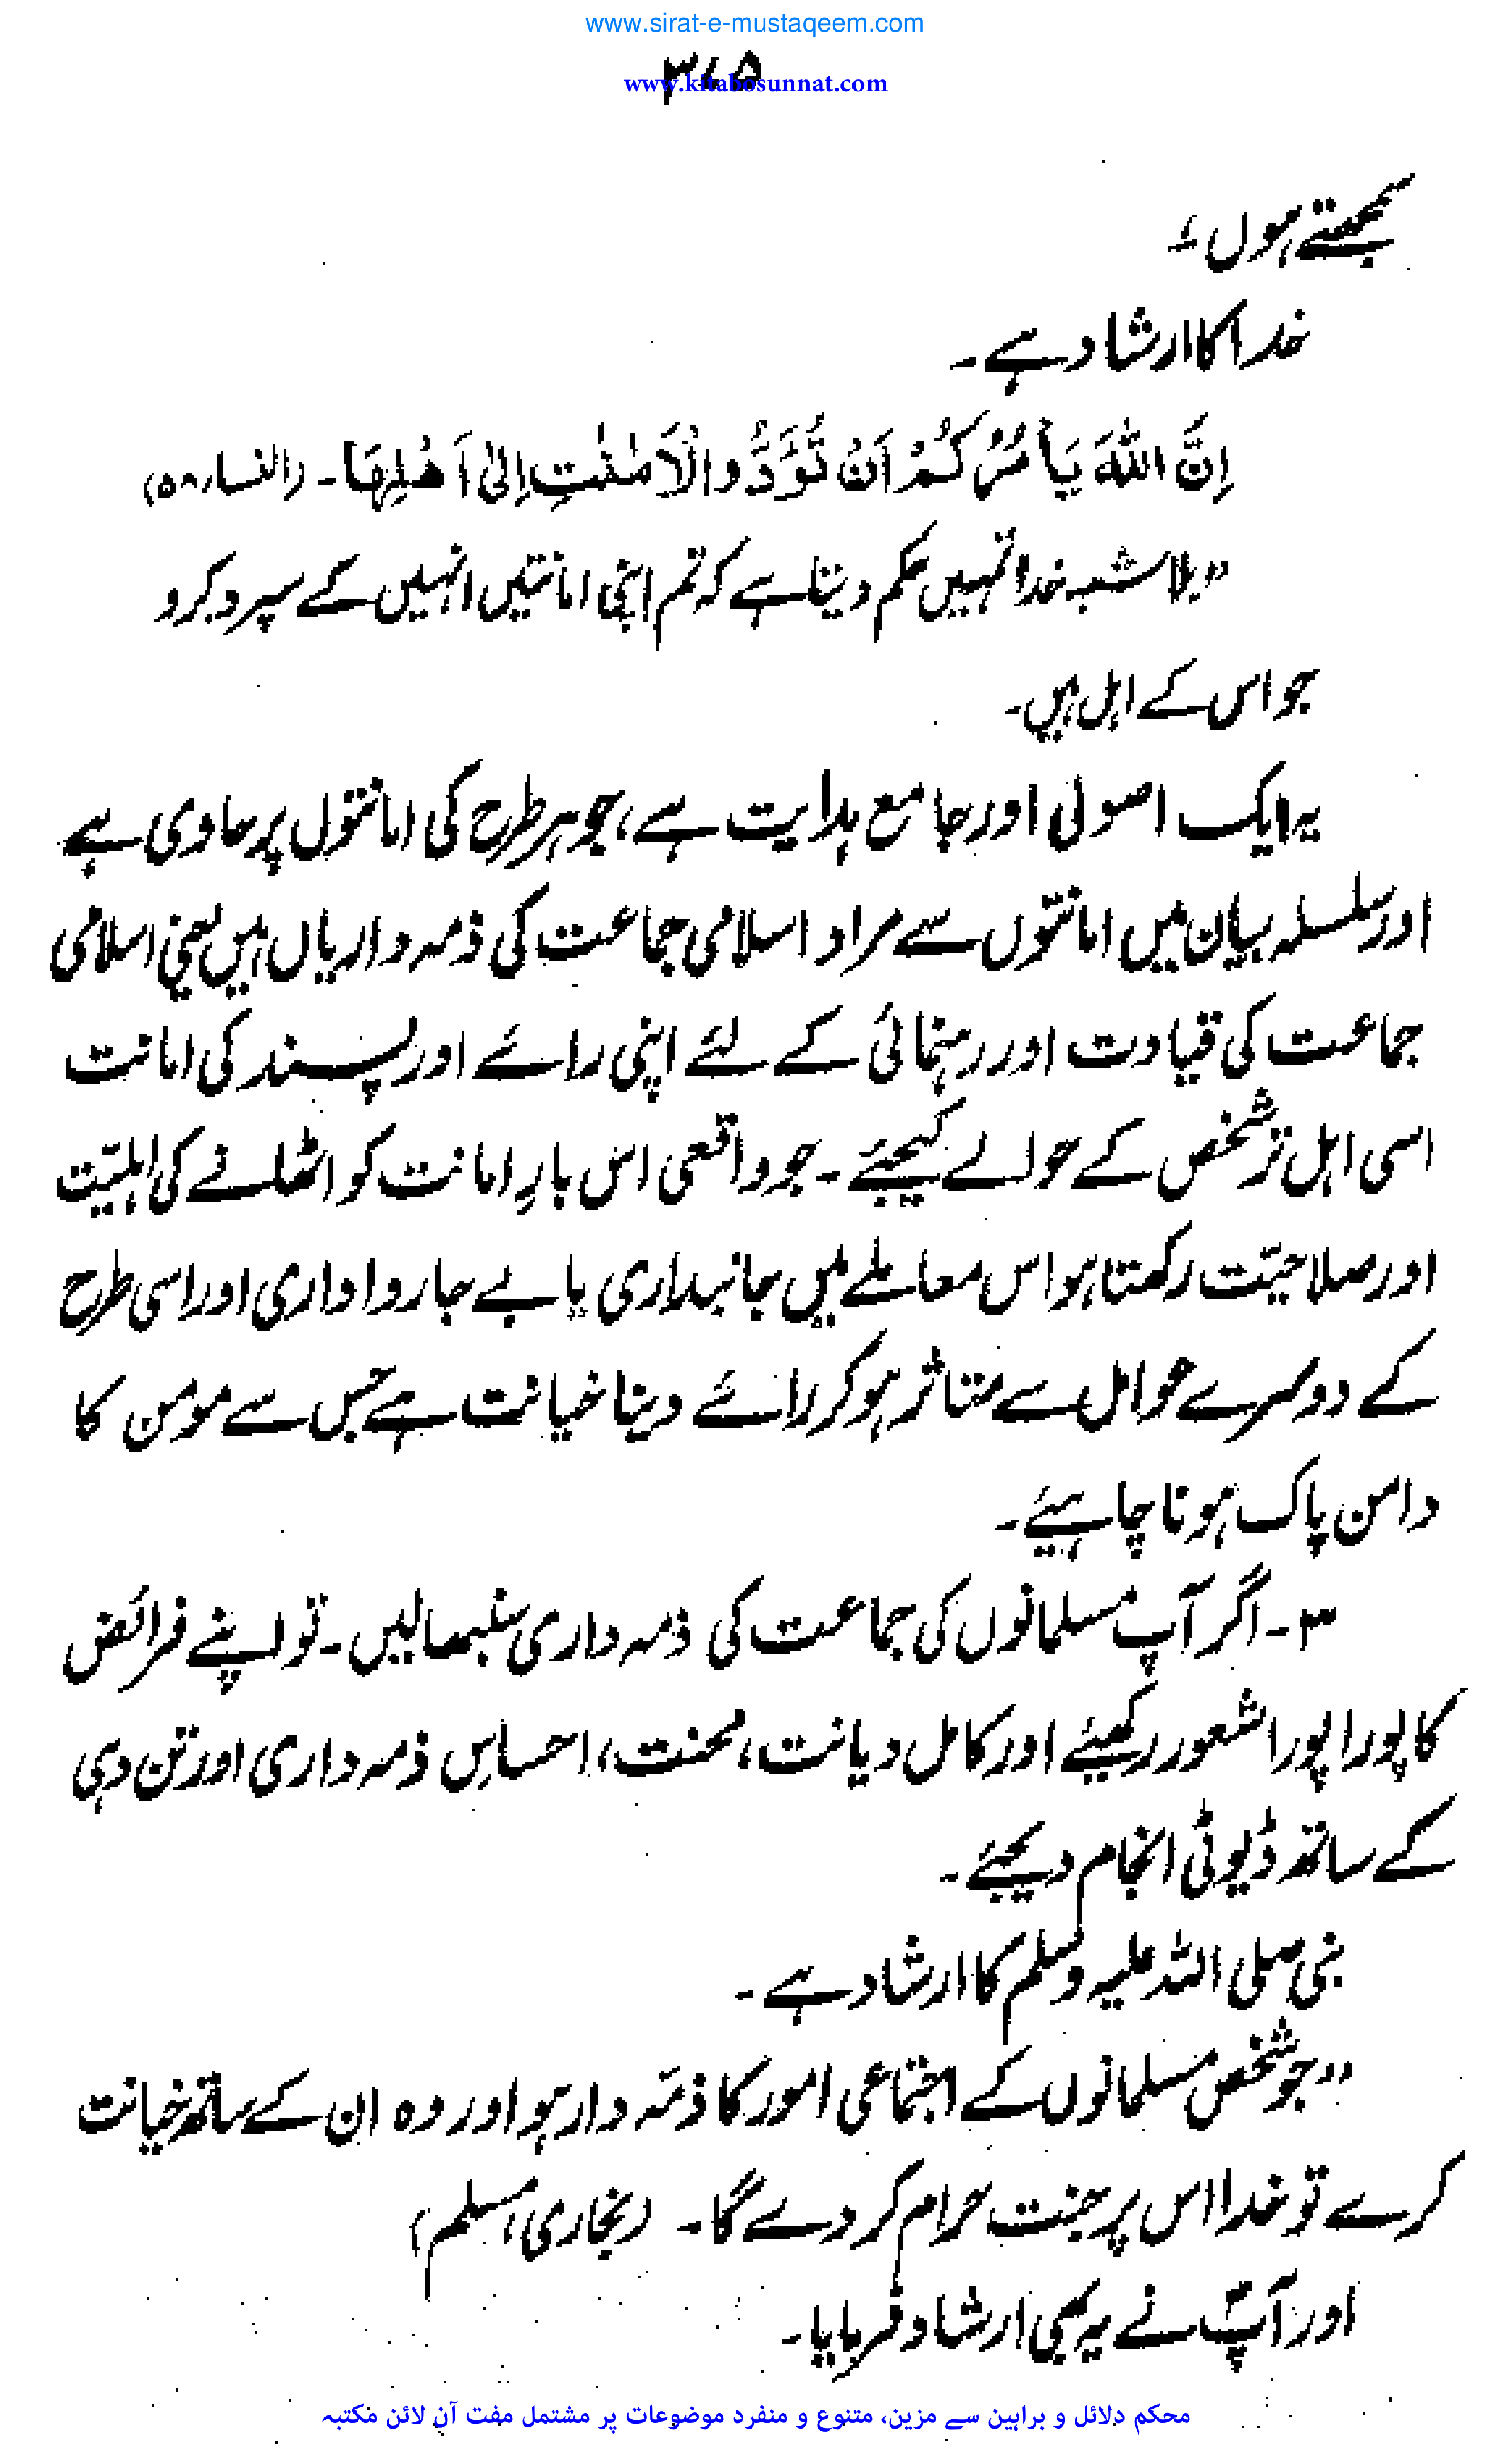 www.sirat-e-mustaqeem.com
۳۷۵
www.kitabosunnat.com
سمجھتے ہوں ؛
خدا کا ارشاد ہے ۔
اِنَّ اللّٰہَ یَاْمُرُکُمْ اَنْ تُؤَدُّوا الْاَمٰنٰتِ اِلیٰ اَھْلِھَا۔ (النساء ۵۸)
”بلا شبہ خدا تمہیں حکم دیتا ہے کہ تم اپنی امانتیں انہیں کے سپرد کرو
جو اس کے اہل ہیں۔
یہ ایک اصولی اور جامع ہدایت ہے، جو ہر طرح کی امانتوں پر حاوی ہے
اور سلسلہ بیان میں امانتوں سے مراد اسلامی جماعت کی ذمہ داریاں ہیں یعنی اسلامی
جماعت کی قیادت اور رہنمائی کے لئے اپنی رائے اور پسند کی امانت
اسی اہل تر شخص کے حوالے کیجئے ۔ جو واقعی اس بارِ امانت کو اٹھانے کی اہلیّت
اور صلاحیّت رکھتا ہو اس معاملے میں جانبداری یا بے جا رواداری اور اسی طرح
کے دوسرے عوامل سے متاثر ہو کر رائے دینا خیانت ہے جس سے مومن کا
دامن پاک ہونا چاہیئے ۔
۳۔ اگر آپ مسلمانوں کی جماعت کی ذمہ داری سنبھالیں ۔ تو اپنے فرائض
کا پورا پورا شعور رکھیئے اور کامل دیانت، محنت، احساسِ ذمہ داری اور تن دہی
کے ساتھ ڈیوٹی انجام دیجئے ۔
نبی صلی اللہ علیہ وسلم کا ارشاد ہے ۔
”جو شخص مسلمانوں کے اجتماعی امور کا ذمّہ دار ہو اور وہ ان کے ساتھ خیانت
کرے تو خدا اس پر جنت حرام کر دے گا ۔ (بخاری، مسلم)
اور آپؐ نے یہ بھی ارشاد فرمایا ۔
محکم دلائل و براہین سے مزین، متنوع و منفرد موضوعات پر مشتمل مفت آن لائن مکتبہ